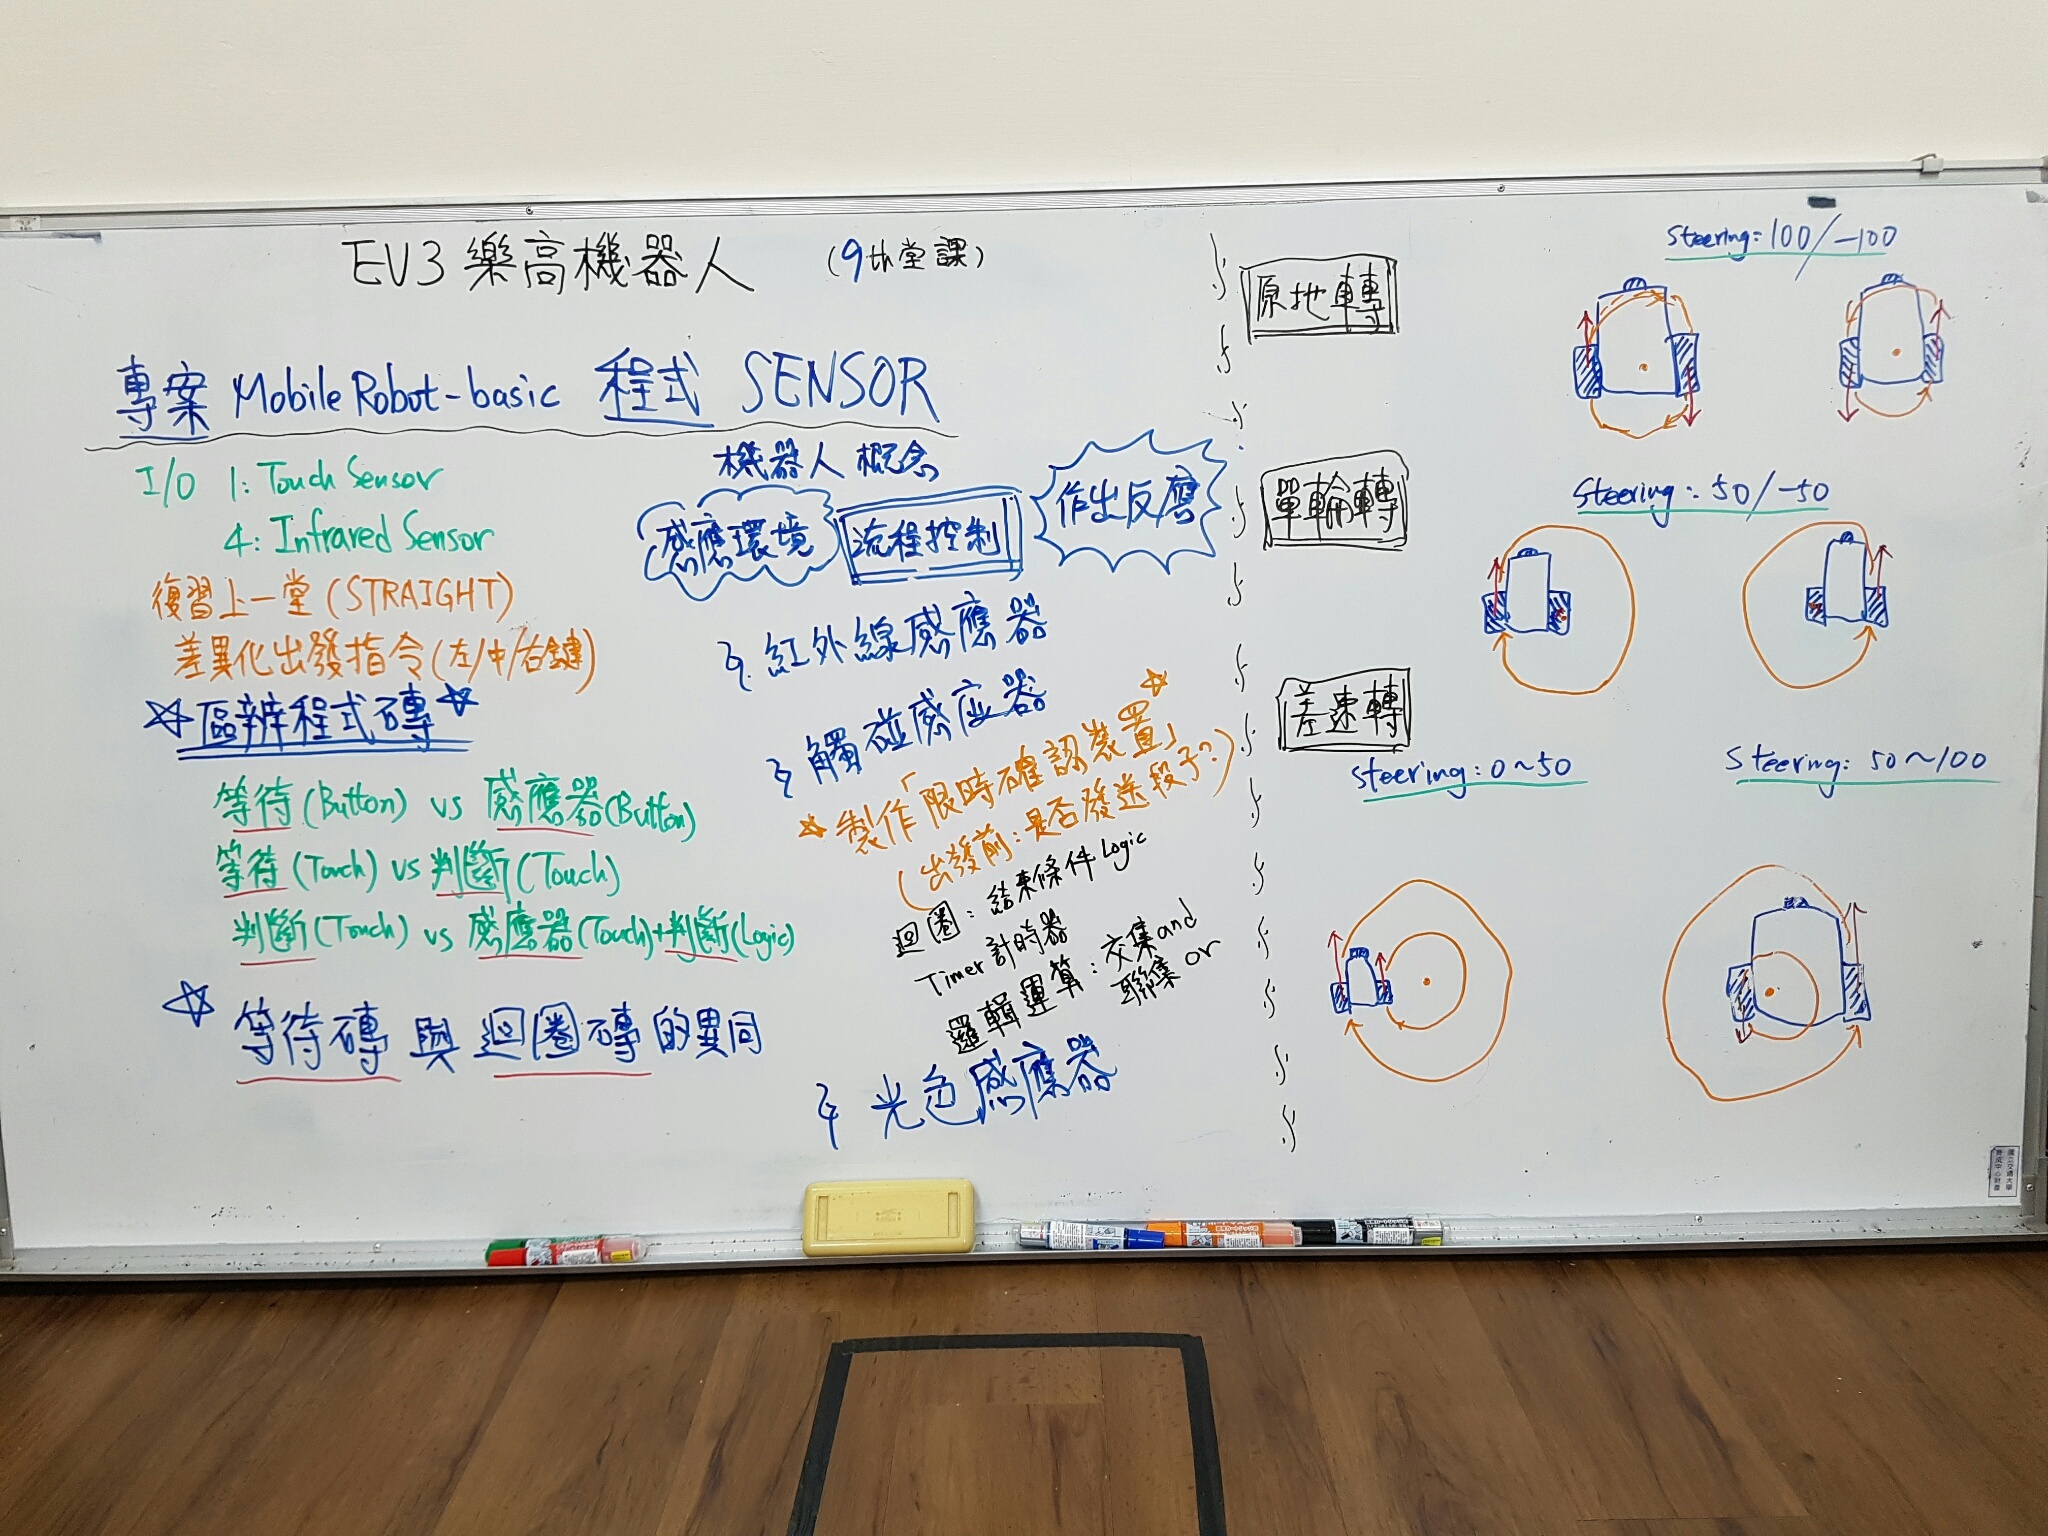 EV3 樂高機器人 (9th堂課)
專案 Mobile Robot-basic 程式 SENSOR
I/O 1: Touch Sensor
4: Infrared Sensor
復習上一堂(STRAIGHT)
差異化出發指令(左/中/右鍵)
☆區辨程式磚☆
等待(Button) vs 感應器(Button)
等待(Touch) vs 判斷(Touch)
判斷(Touch) vs 感應器(Touch)+判斷(Logic)
☆等待磚與迴圈磚的異同
機器人 概念
感應環境 流程控制 作出反應
紅外線感應器
觸碰感应器
☆製作「限時確認裝置」☆
(出發前:是否發送骰子?)
迴圈:結束條件 Logic
Timer 計時器
邏輯運算:交集and
聯集 or
光色感應器
原地轉
Steering: 100/-100
單輪轉
Steering: 50/-50
差速轉
Steering: 0~50
Steering: 50~100
國立交通大學